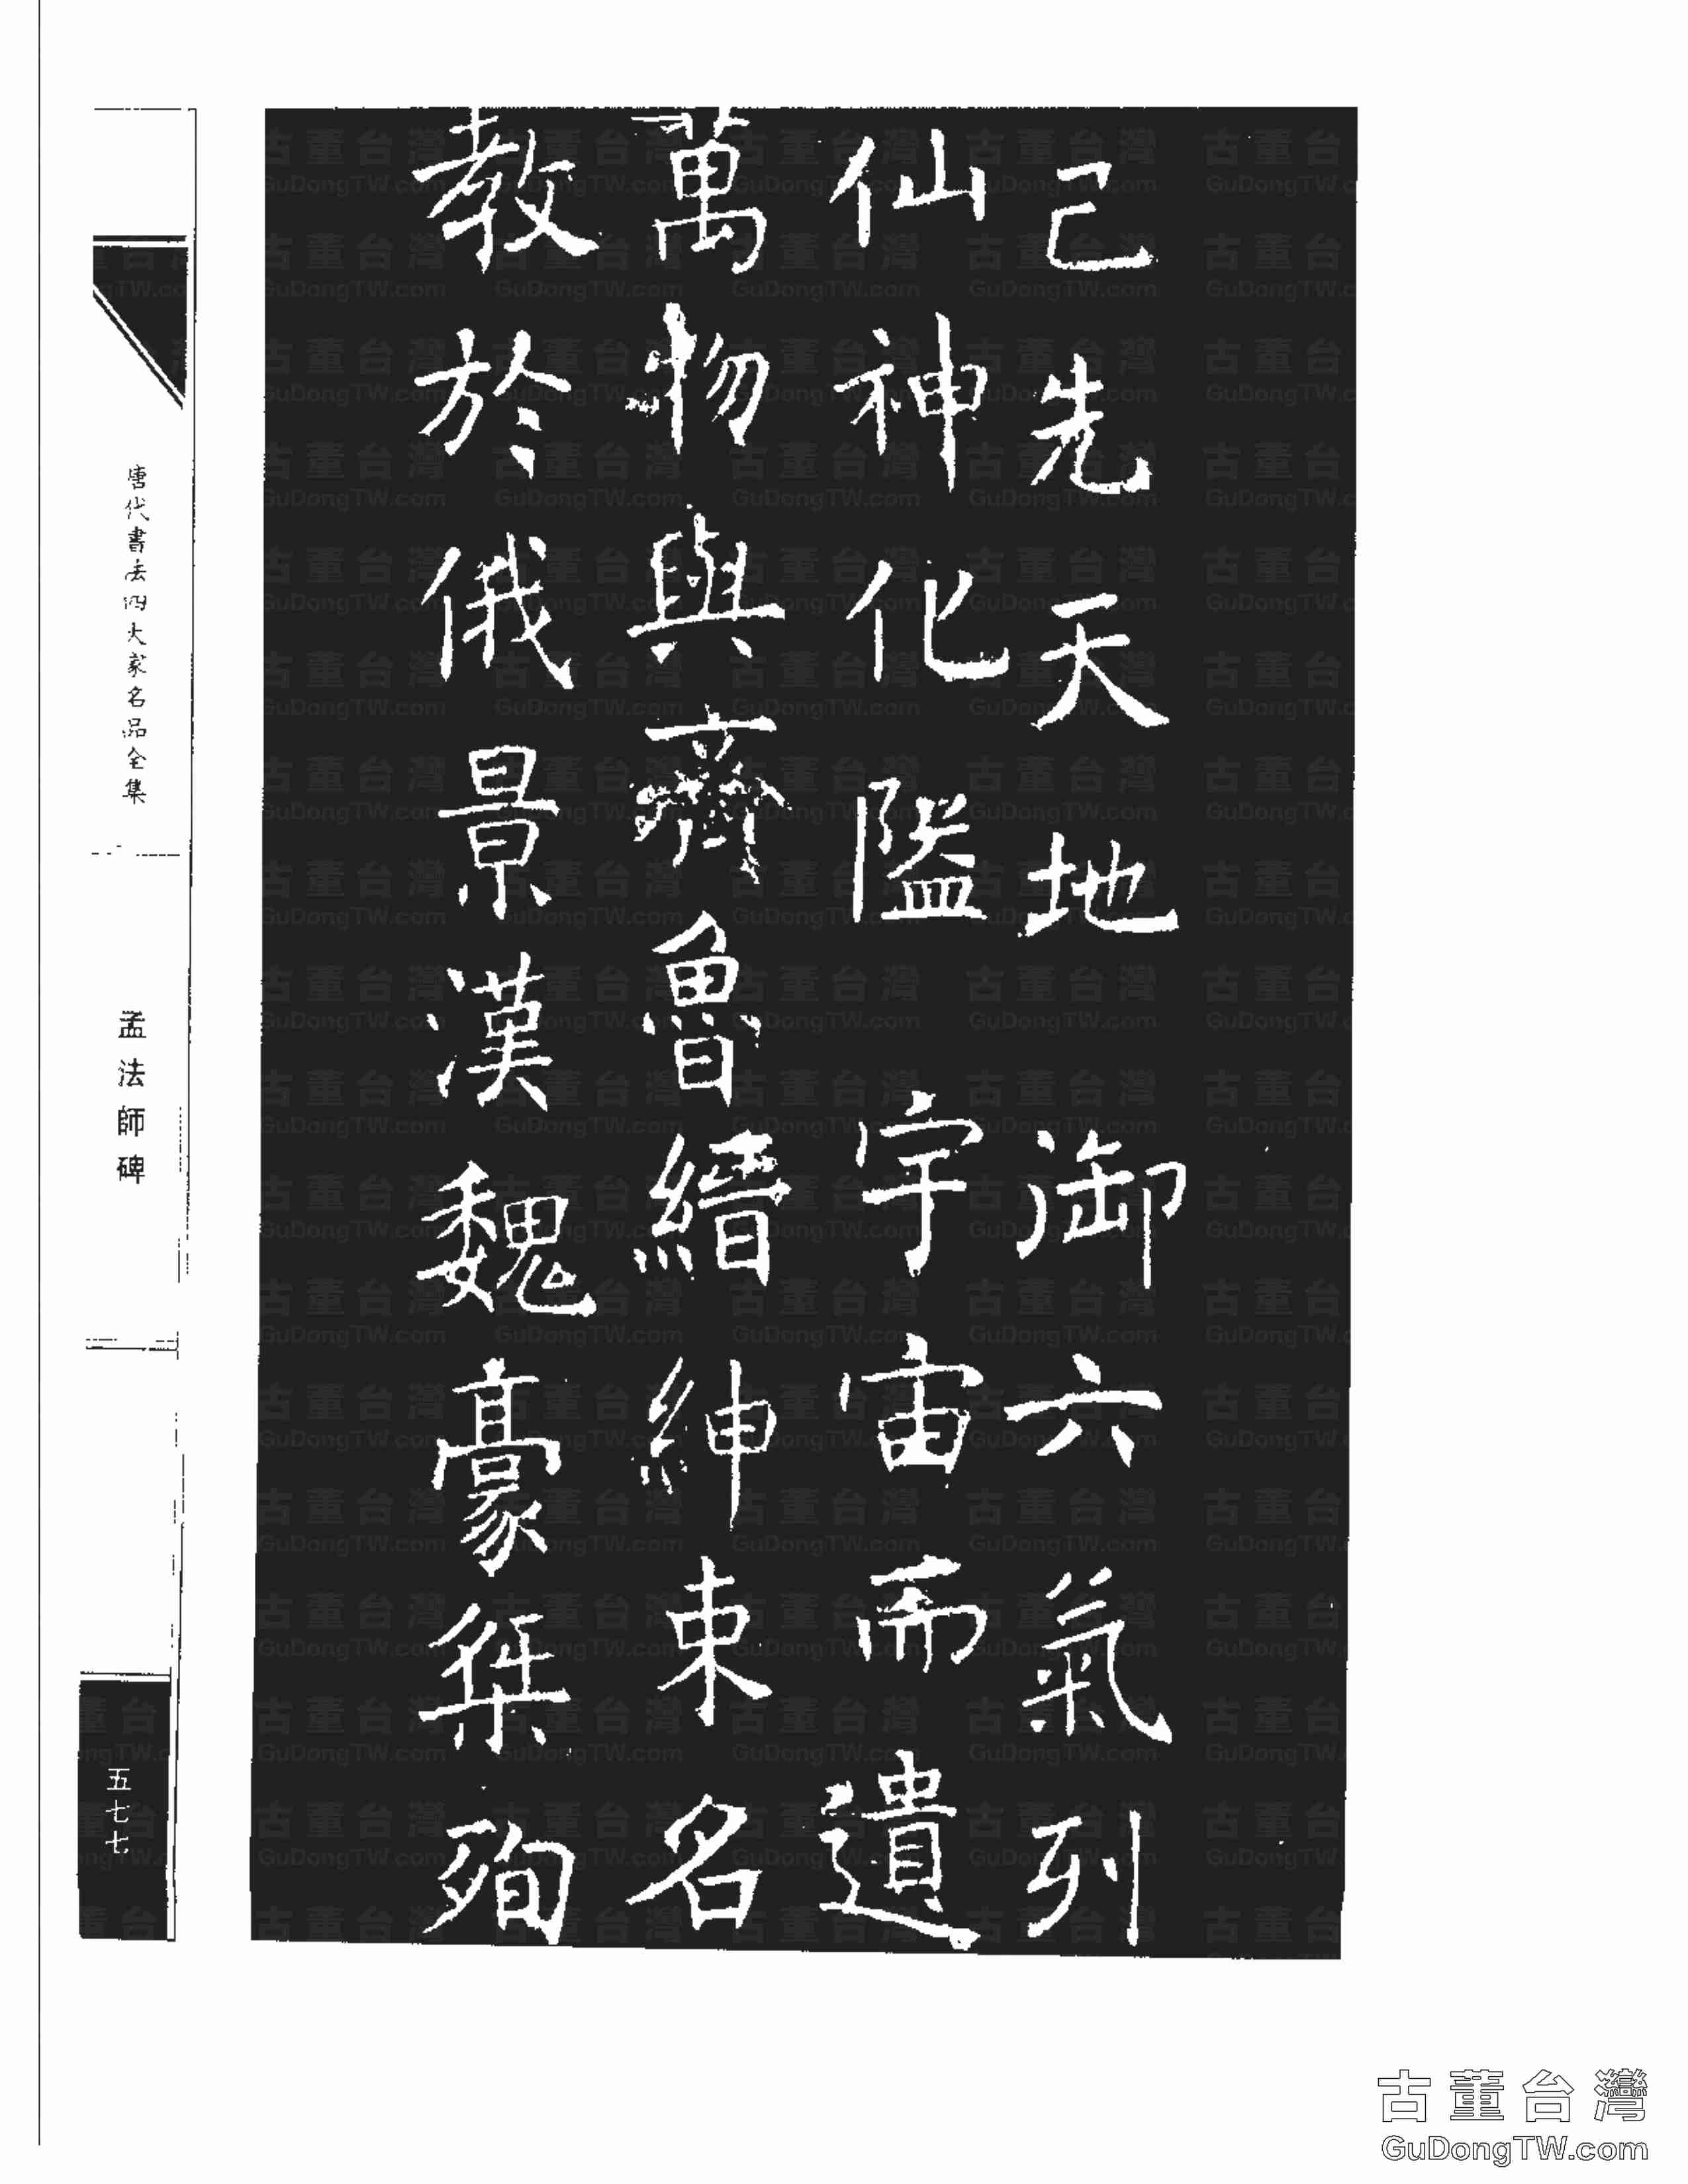 己先天地御六氣列
仙神化隘宇宙而遺
萬物與齊魯縉紳束名
教於俄景漢魏豪桀殉
唐代書法四大家名品全集
孟法師碑
五七七
古董台灣
GuDongTW.com